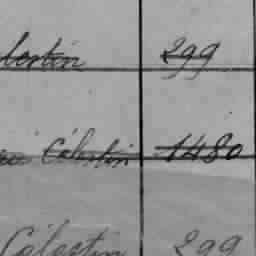 lestin 299
Célestin 1480
Célestin 299